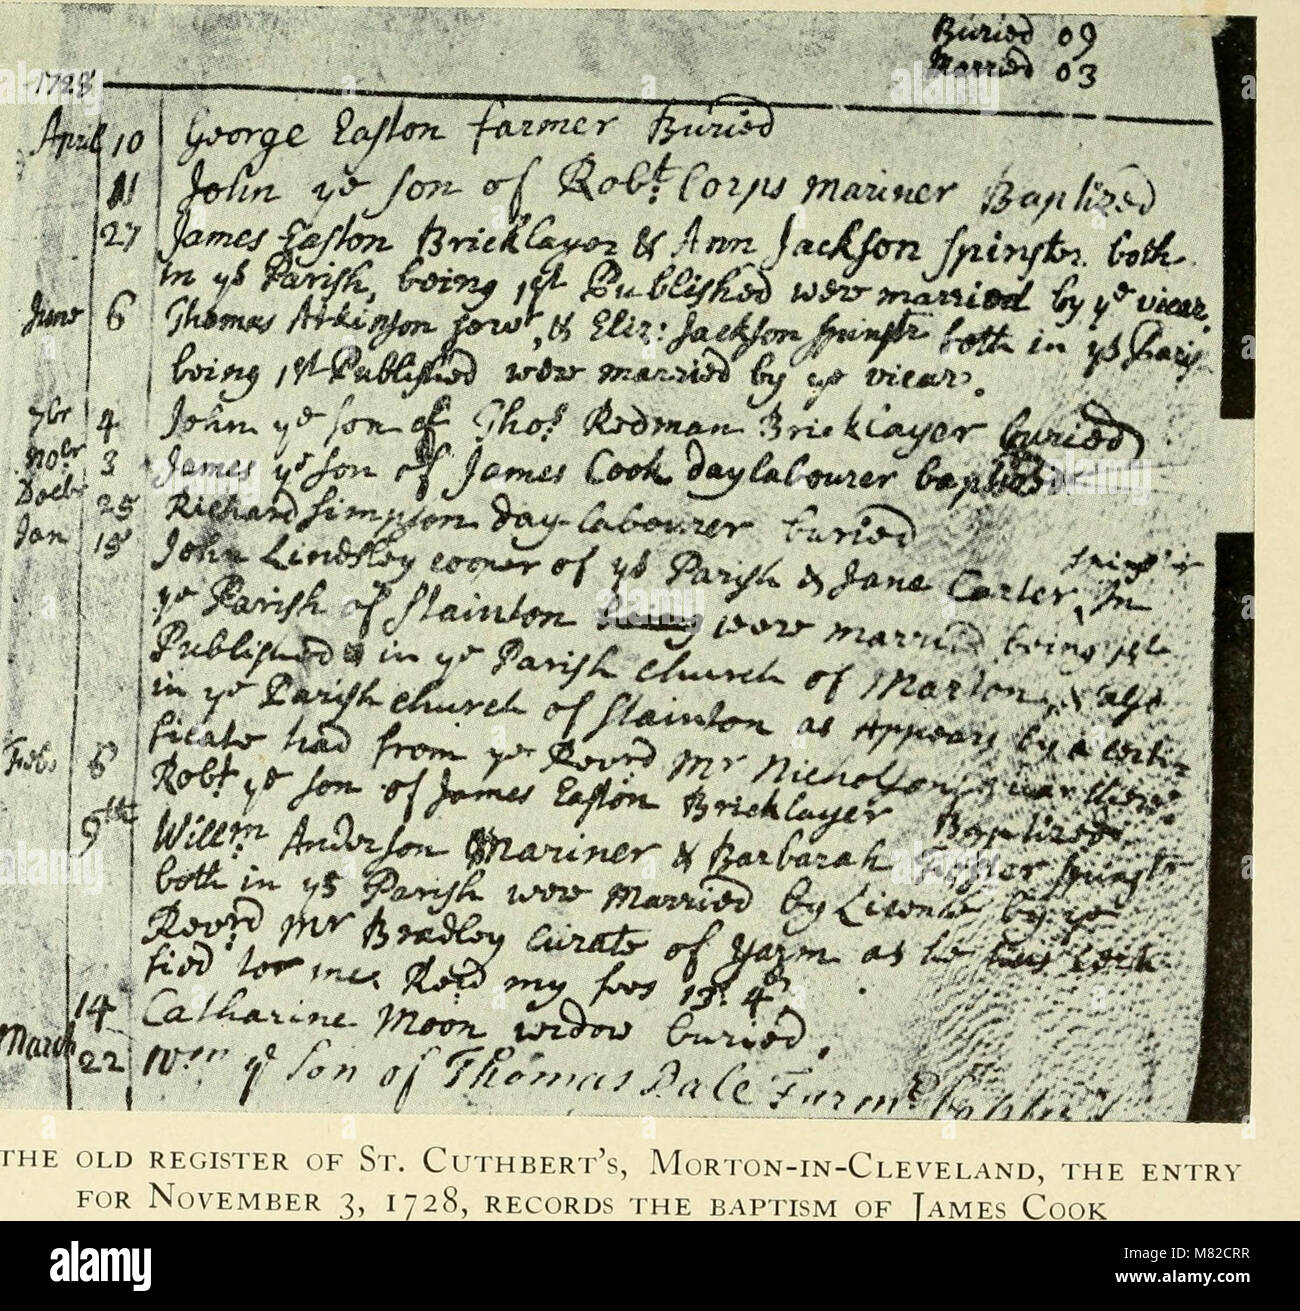 Buried 09
Married 03
1728
April 10 George Easton farmer Buried
11 John ye son of Robt. Corps mariner Baptized
27 James Easton Bricklayer & Ann Jackson spinstr. both
in ys Parish, being 1st Published were married by ye vicar.
June 6 Thomas Atkinson & Eliz: Jackson spinstr both in ys Parish
being 1st Published were married by ye vicar.
7br 4 John ye son of Thos. Redman Bricklayer buried
Nobr 3 James ye son of James Cook daylabourer baptized
Decbr 25 Richard Simpson day-labourer buried
Jan 15 John Lindsley of ys Parish & Jane Carter, In
ye Parish of Stainton were married being 1st
Published in ye Parish church of Marton, & also
in ye Parish church of Stainton as Appears by a certi-
ficate had from ye Revrd Mr Nicholson
Feb. 6 Robt. ye son of James Easton Bricklayer Baptized
9th Willm Anderson Mariner & Barbarah spinstr
both in ys Parish were Married by Licence by ye
Revrd Mr Bradley curate of Yarm as he certi-
fied to me. Recd my fees 13s. 4d.
14 Catharine Moon widow buried.
March 22 Wm ye son of Thomas Dale Farmr
THE OLD REGISTER OF ST. CUTHBERT'S, MORTON-IN-CLEVELAND, THE ENTRY
FOR NOVEMBER 3, 1728, RECORDS THE BAPTISM OF JAMES COOK
alamy
Image ID: M82CRR
www.alamy.com